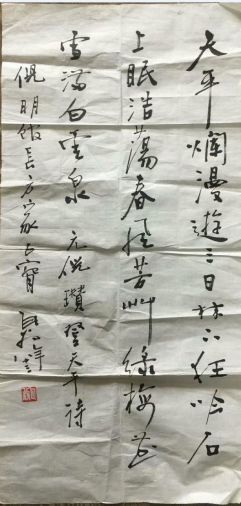 天平爛漫遊三日林下狂吟石
上眠浩蕩春風芳艸綠梅花
雪滿白雲泉 元倪瓚登天平詩
倪明 長方家